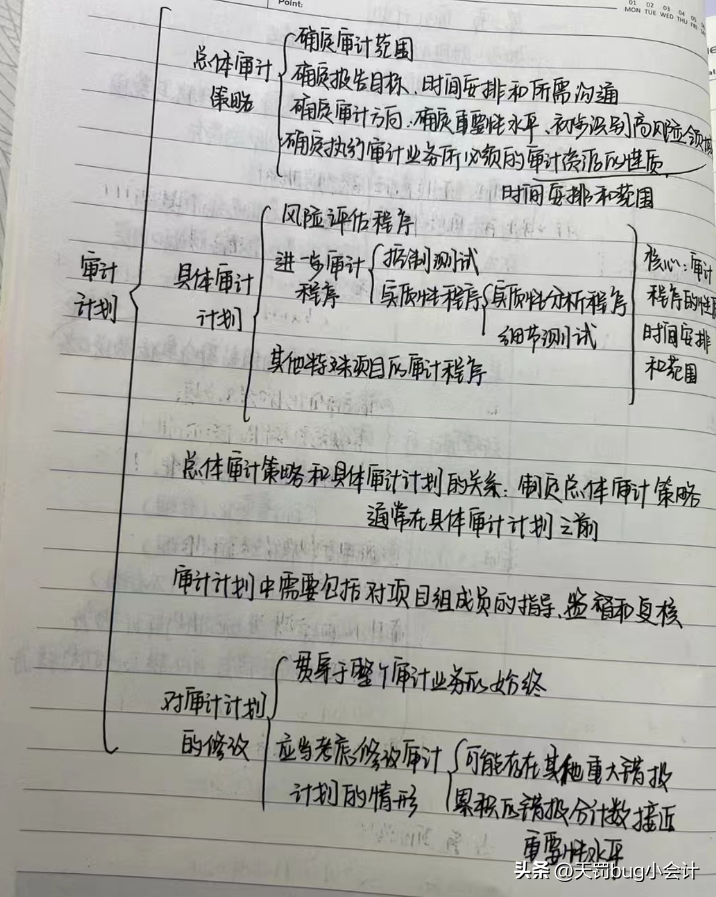 Point:
01 02 03 04 05
MON TUE WED THU FRI
总体审计
策略
确定审计范围
确定报告目标、时间安排和所需沟通
确定审计方向:确定重要性水平、初步识别高风险领域
确定执行审计业务所必须的审计资源的性质、
时间安排和范围
审计
计划
具体审计
计划
风险评估程序
进一步审计
程序
控制测试
实质性程序
实质性分析程序
细节测试
其他特殊项目的审计程序
核心:审计
程序的性质
时间安排
和范围
总体审计策略和具体审计计划的关系:制定总体审计策略
通常在具体审计计划之前
审计计划中需要包括对项目组成员的指导、监督和复核
对审计计划
的修改
贯穿于整个审计业务的始终
应当考虑修改审计
计划的情形
可能存在其他重大错报
累积的错报合计数接近
重要性水平
头条 @天罚bug小会计